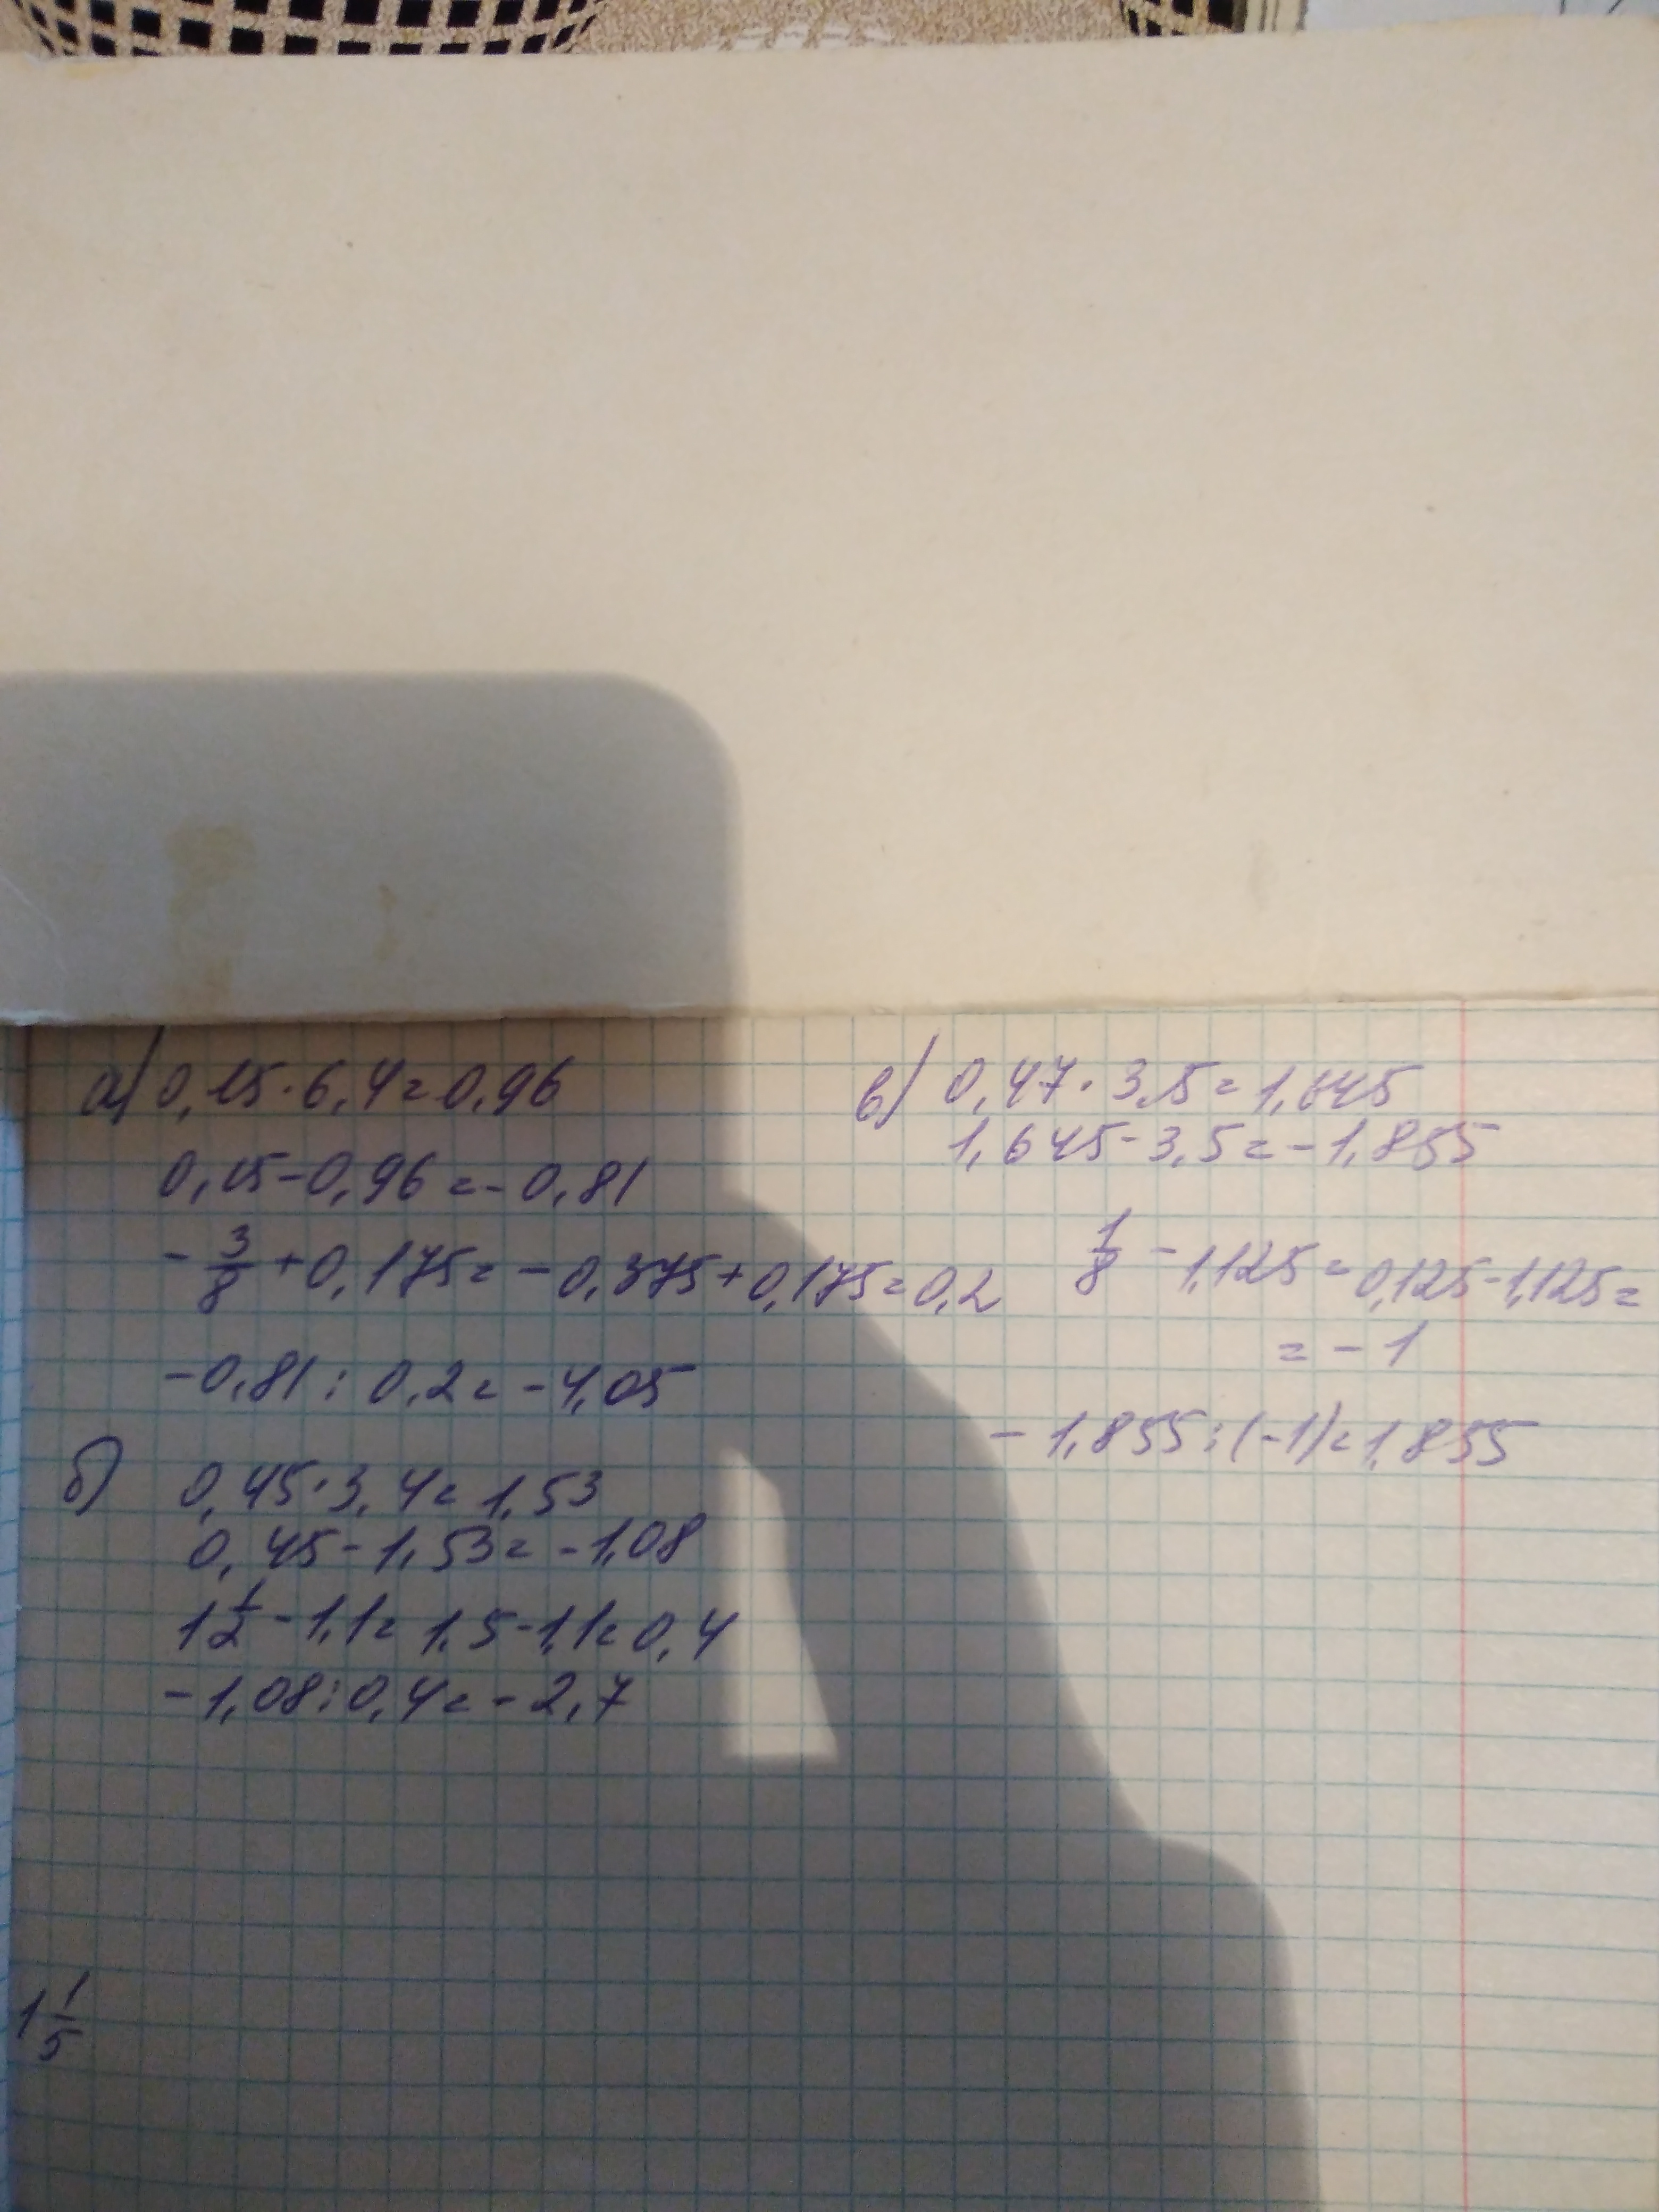 а) 0,15·6,4=0,96
0,15-0,96=-0,81
-3/8+0,175=-0,375+0,175=0,2
-0,81:0,2=-4,05
б) 0,45·3,4=1,53
0,45-1,53=-1,08
1 1/2-1,1=1,5-1,1=0,4
-1,08:0,4=-2,7
1 1/5
в) 0,47·3,5=1,645
1,645-3,5=-1,855
1/8-1,125=0,125-1,125=
=-1
-1,855:(-1)=1,855